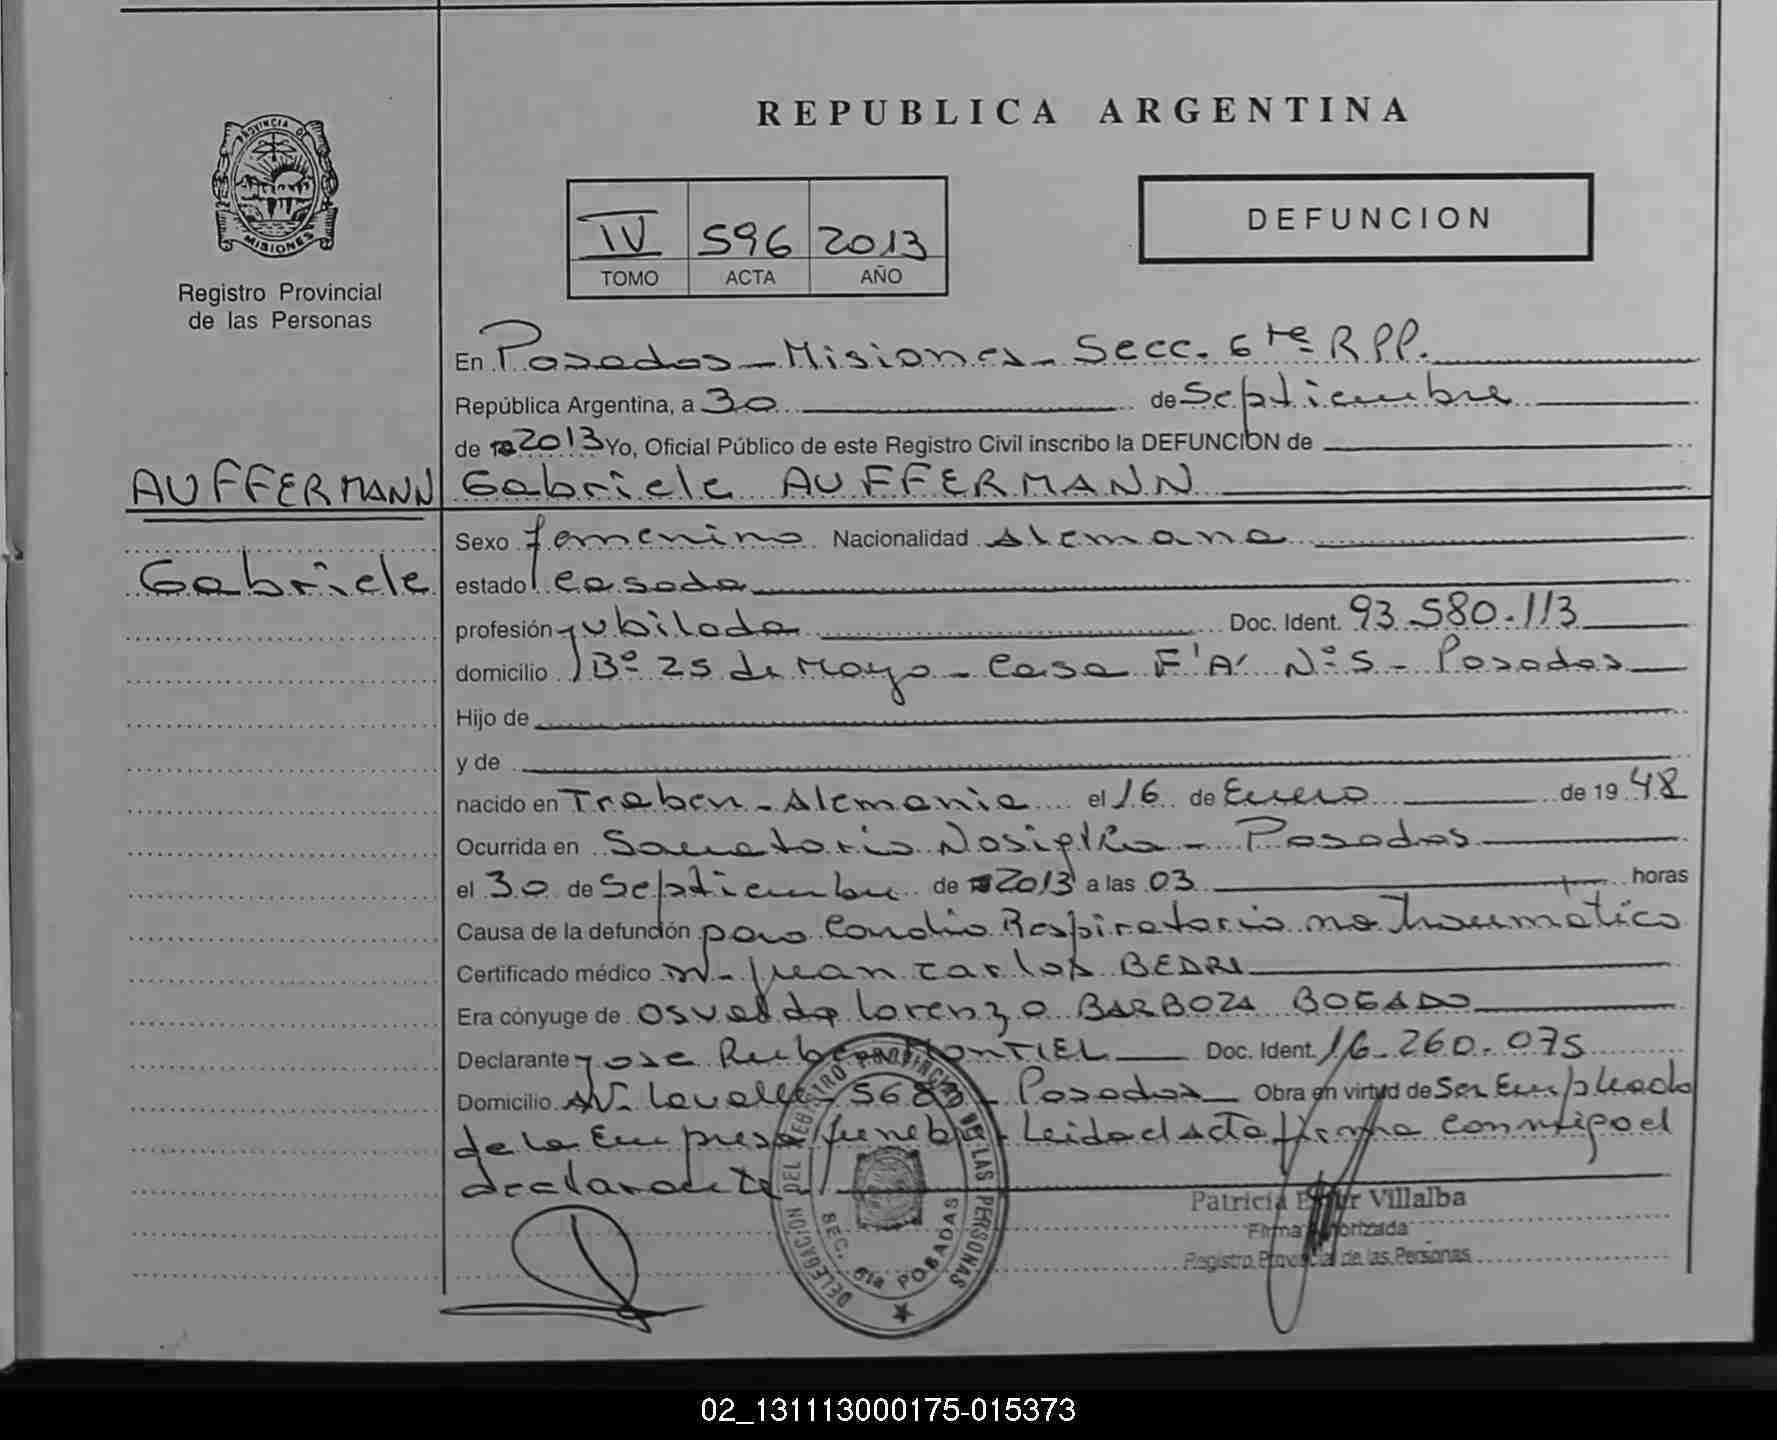 REPUBLICA ARGENTINA
PROVINCIA DE
MISIONES
Registro Provincial
de las Personas
IV 596 2013
TOMO ACTA AÑO
DEFUNCION
En Posadas - Misiones - Secc. 6ta R.P.P.
República Argentina, a 30 de Septiembre
de 2013 Yo, Oficial Público de este Registro Civil inscribo la DEFUNCION de
AUFFERMANN Gabriele AUFFERMANN
Sexo femenino Nacionalidad Alemana
Gabriele estado casada
profesión jubilada Doc. Ident. 93.580.113
domicilio Bº 25 de Mayo - Casa F'A' Nº 5 - Posadas
Hijo de
y de
nacido en Traben - Alemania el 16 de Enero de 1948
Ocurrida en Sanatorio Nosiglia - Posadas
el 30 de Septiembre de 2013 a las 03 horas
Causa de la defunción paro Cardio Respiratorio no traumatico
Certificado médico Juan Carlos BEDRI
Era cónyuge de Osvaldo Lorenzo BARBOZA BOGADO
Declarante Jose Ruben MONTIEL Doc. Ident. 16.260.075
Domicilio AV. Lavalle 5683 - Posadas Obra en virtud de Ser Empleado
de la Empresa funebre Leida el acta firma conmigo el
declarante
DELEGACION DEL REGISTRO PROVINCIAL DE LAS PERSONAS
SEC. 6ta POSADAS
Patricia Villalba
Firma Autorizada
Registro Provincial de las Personas
02_131113000175-015373